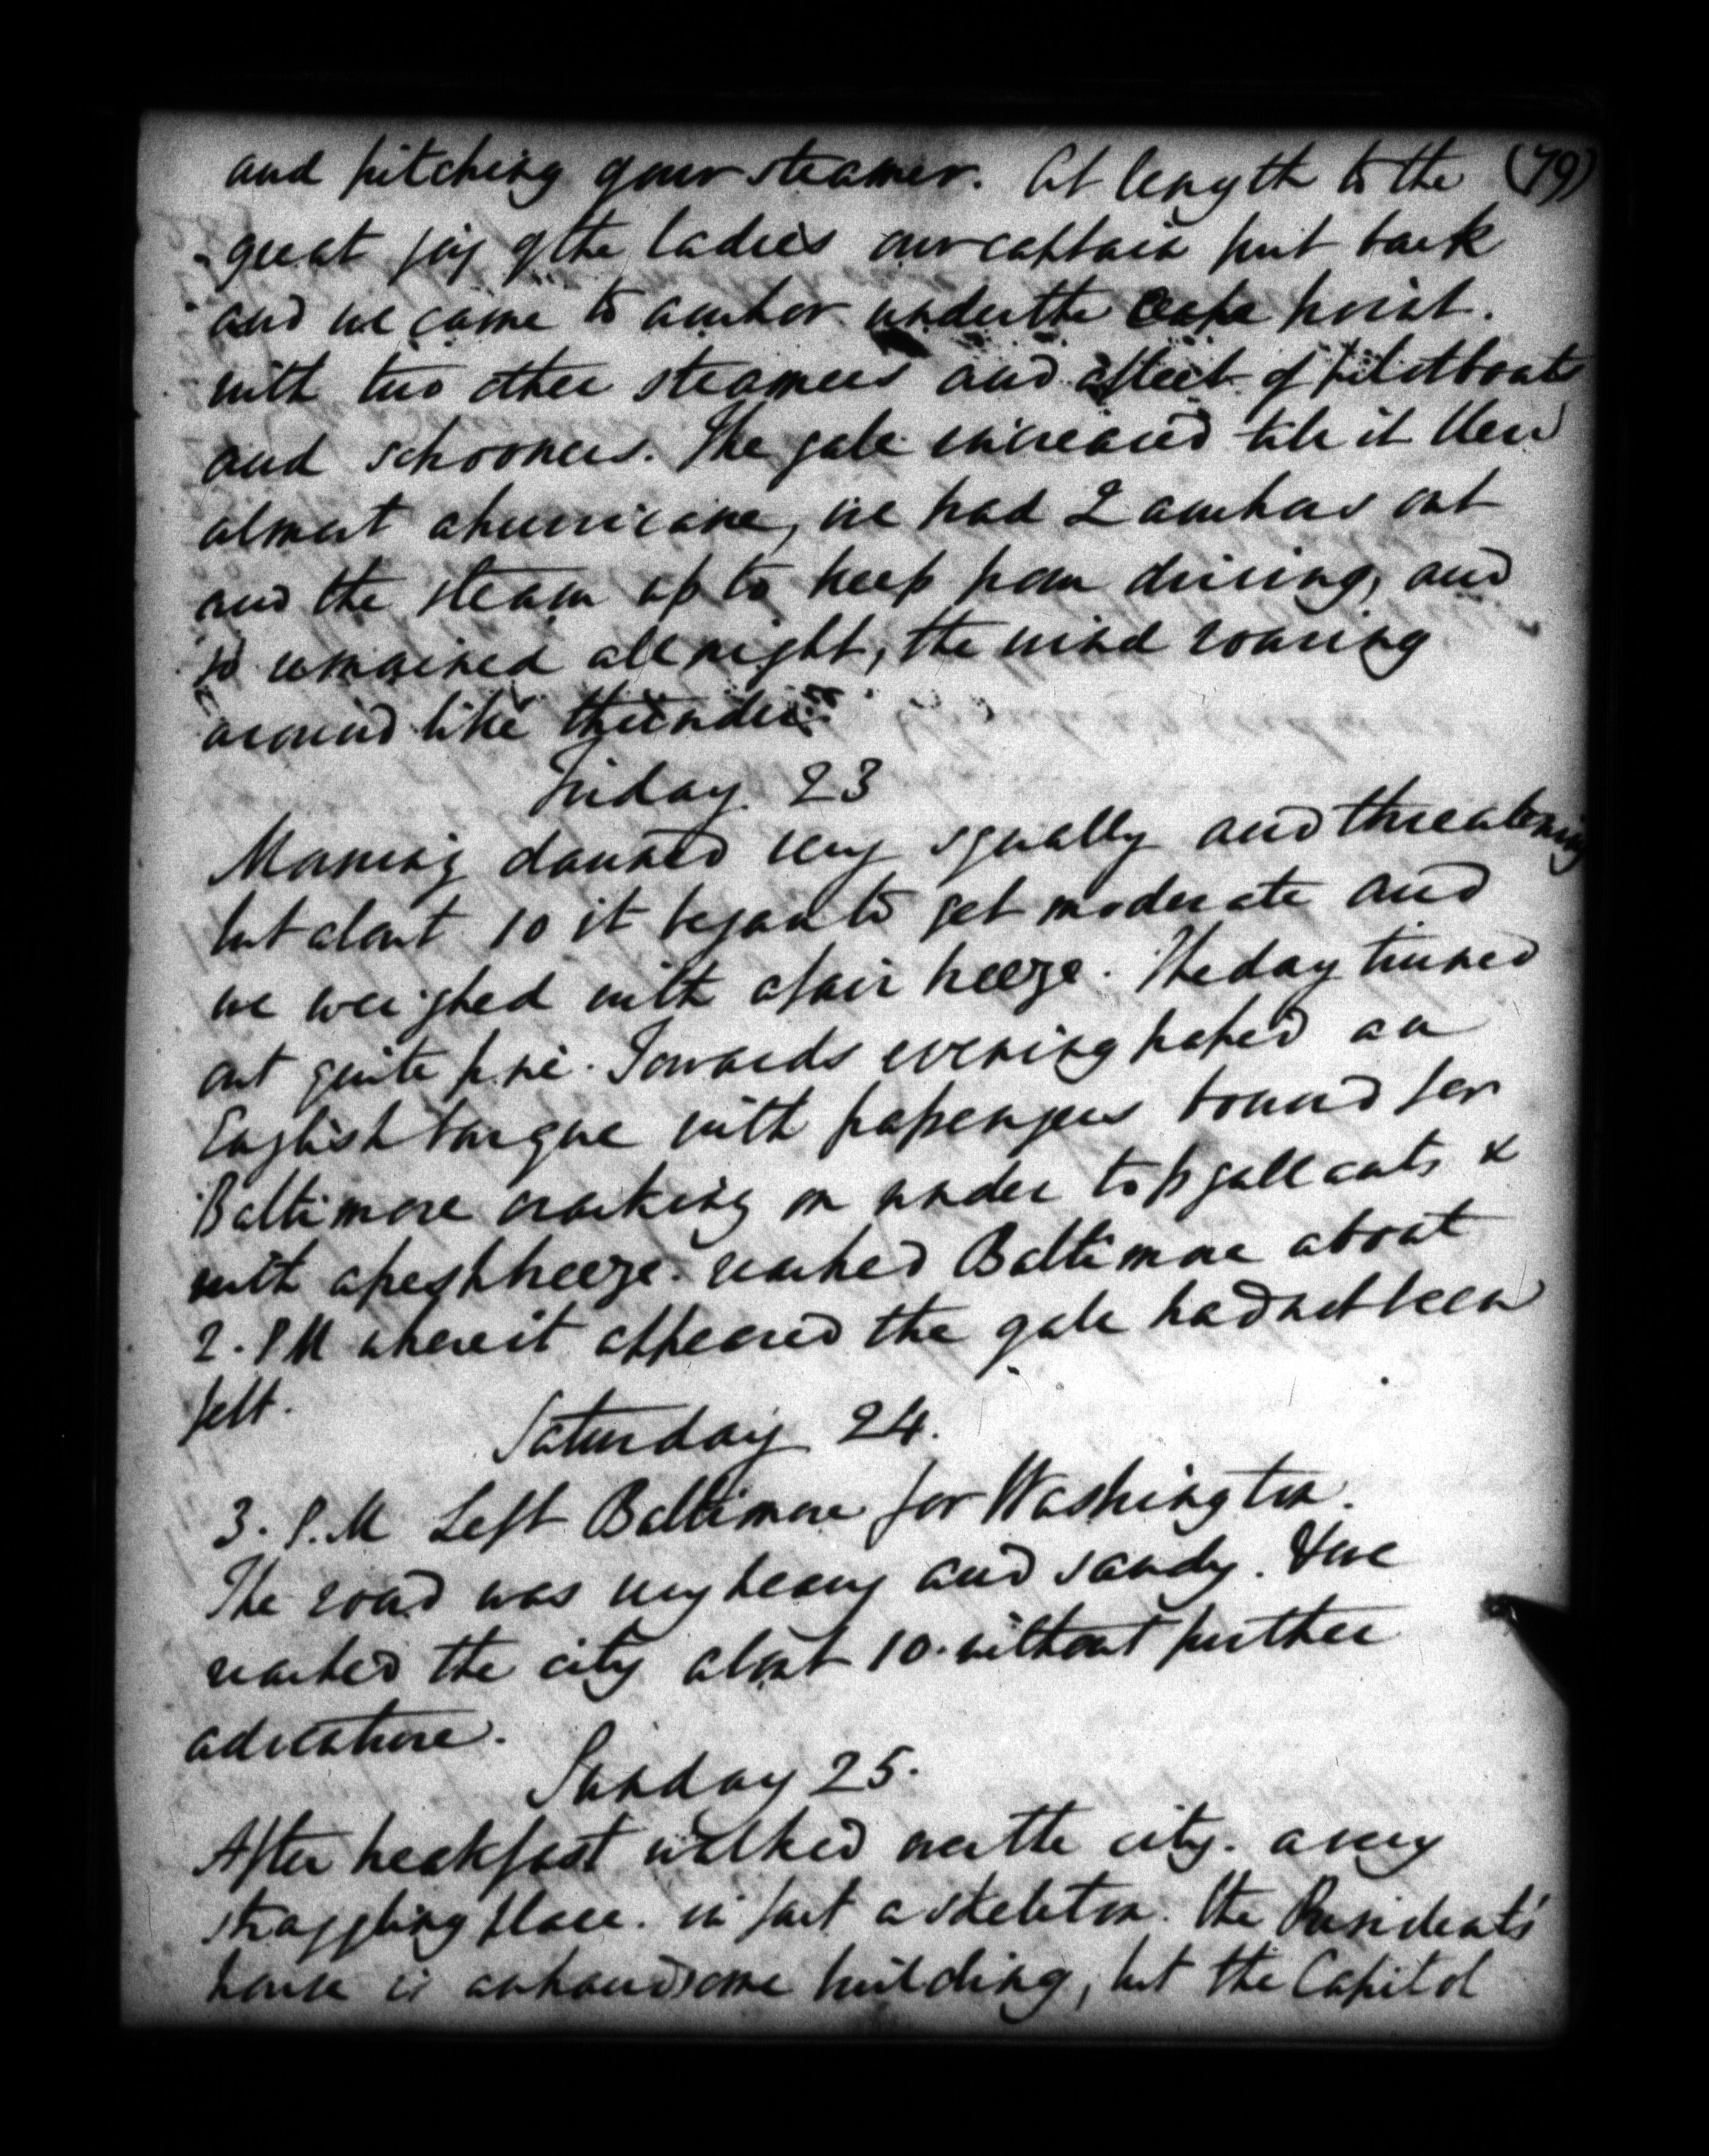 and pitching of our steamer. At length to the (79)
great joy of the ladies our captain put back
and we came to anchor under the Cape point.
with two other steamers and a fleet of pilotboats
and schooners. The gale increased till it blew
almost a hurricane, we had 2 anchors out
and the steam up to keep from driving, and
so remained all night, the wind roaring
around like thunder.
Friday 23
Morning dawned very squally and threatening
but about 10 it began to get moderate and
we weighed with a fair breeze. The day turned
out quite fine. Towards evening passed an
English barque with passengers bound for
Baltimore cracking on under top gallants &
with a fresh breeze. reached Baltimore about
2. PM where it appeared the gale had not been
felt.
Saturday 24.
3. P.M Left Baltimore for Washington.
The road was very heavy and sandy. & we
reached the city about 10. without further
adventure.
Sunday 25.
After breakfast walked over the city. a very
straggling place. in fact a skeleton. The President's
house is a handsome building, but the Capitol